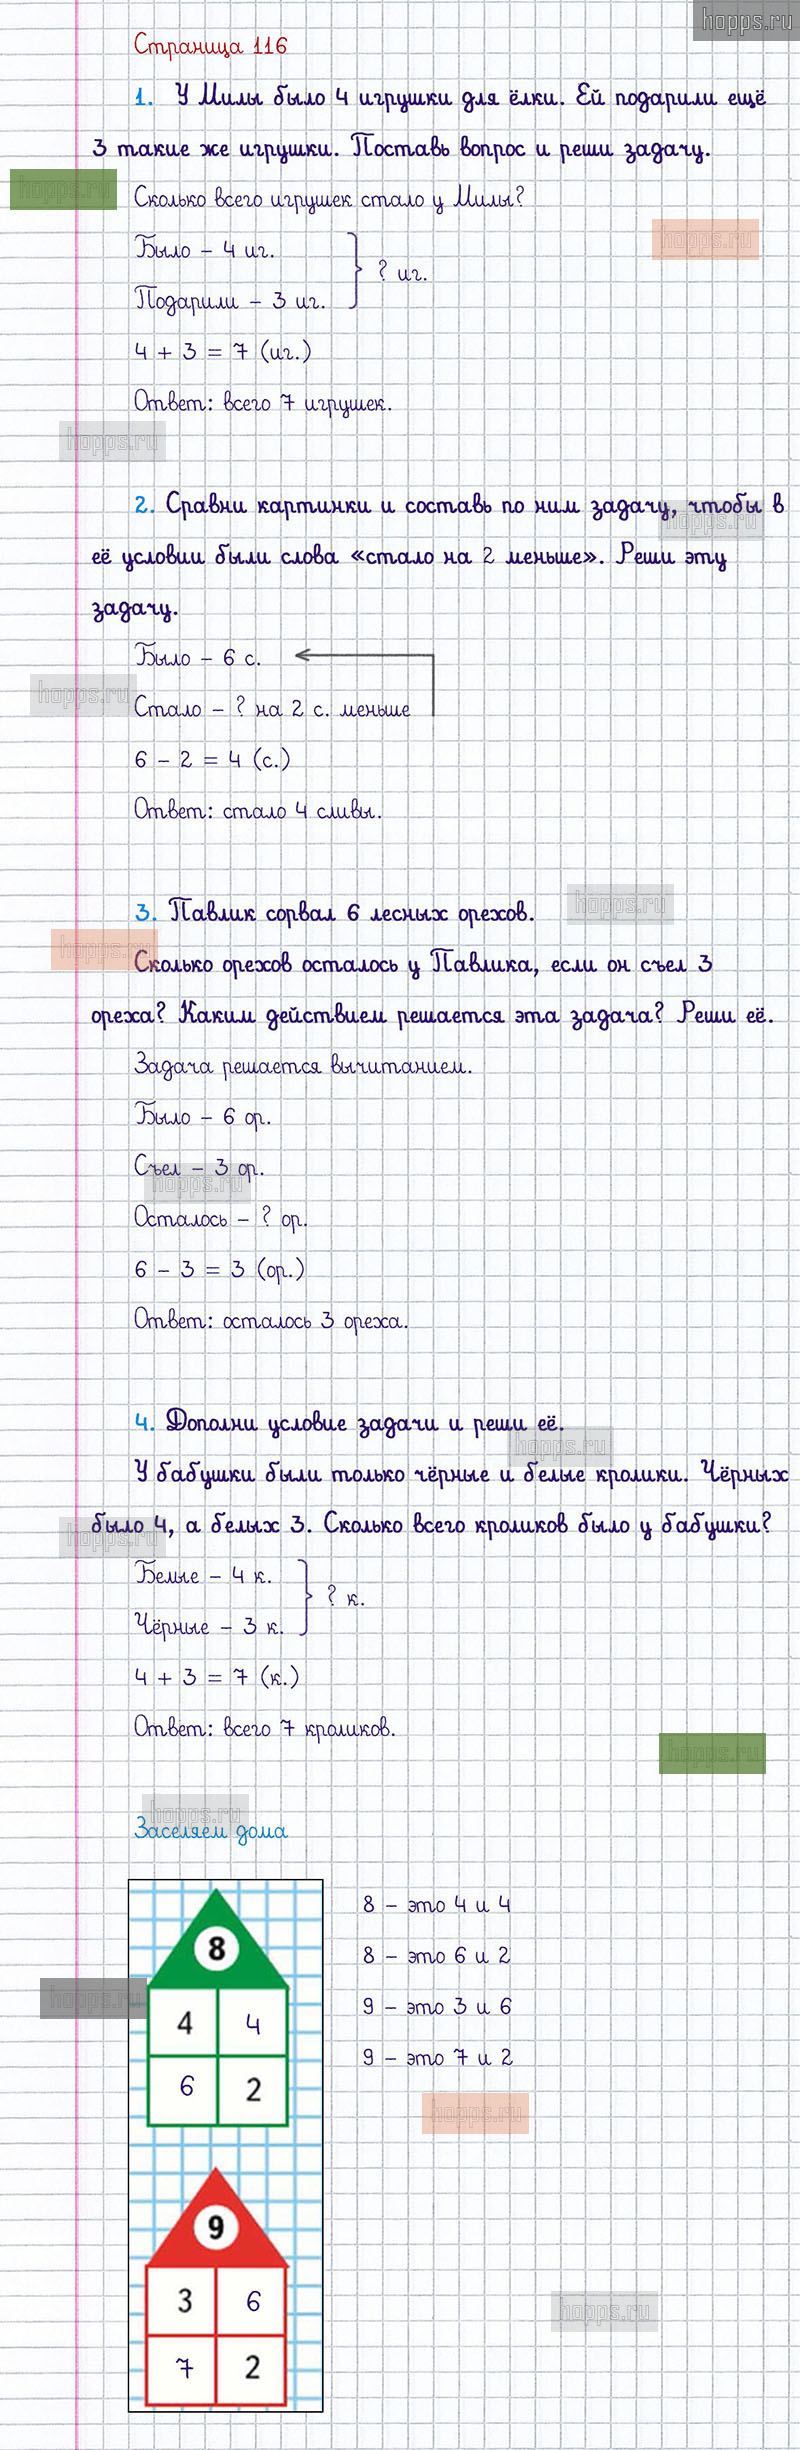 hopps.ru
Страница 116
1. У Милы было 4 игрушки для ёлки. Ей подарили ещё
3 такие же игрушки. Поставь вопрос и реши задачу.
hopps.ru
Сколько всего игрушек стало у Милы?
hopps.ru
Было – 4 иг.
? иг.
Подарили – 3 иг.
4 + 3 = 7 (иг.)
Ответ: всего 7 игрушек.
hopps.ru
2. Сравни картинки и составь по ним задачу, чтобы в
hopps.ru
её условии были слова «стало на 2 меньше». Реши эту
задачу.
Было – 6 с.
hopps.ru
Стало – ? на 2 с. меньше
6 – 2 = 4 (с.)
Ответ: стало 4 сливы.
hopps.ru
3. Павлик сорвал 6 лесных орехов.
hopps.ru
Сколько орехов осталось у Павлика, если он съел 3
ореха? Каким действием решается эта задача? Реши её.
Задача решается вычитанием.
Было – 6 ор.
Съел – 3 ор.
hopps.ru
Осталось – ? ор.
6 – 3 = 3 (ор.)
Ответ: осталось 3 ореха.
4. Дополни условие задачи и реши её.
hopps.ru
У бабушки были только чёрные и белые кролики. Чёрных
было 4, а белых 3. Сколько всего кроликов было у бабушки?
hopps.ru
Белые – 4 к.
? к.
Чёрные – 3 к.
4 + 3 = 7 (к.)
Ответ: всего 7 кроликов.
hopps.ru
hopps.ru
Заселяем дома
8 – это 4 и 4
8
8 – это 6 и 2
hopps.ru
4 4
9 – это 3 и 6
9 – это 7 и 2
6 2
hopps.ru
9
3 6
hopps.ru
7 2